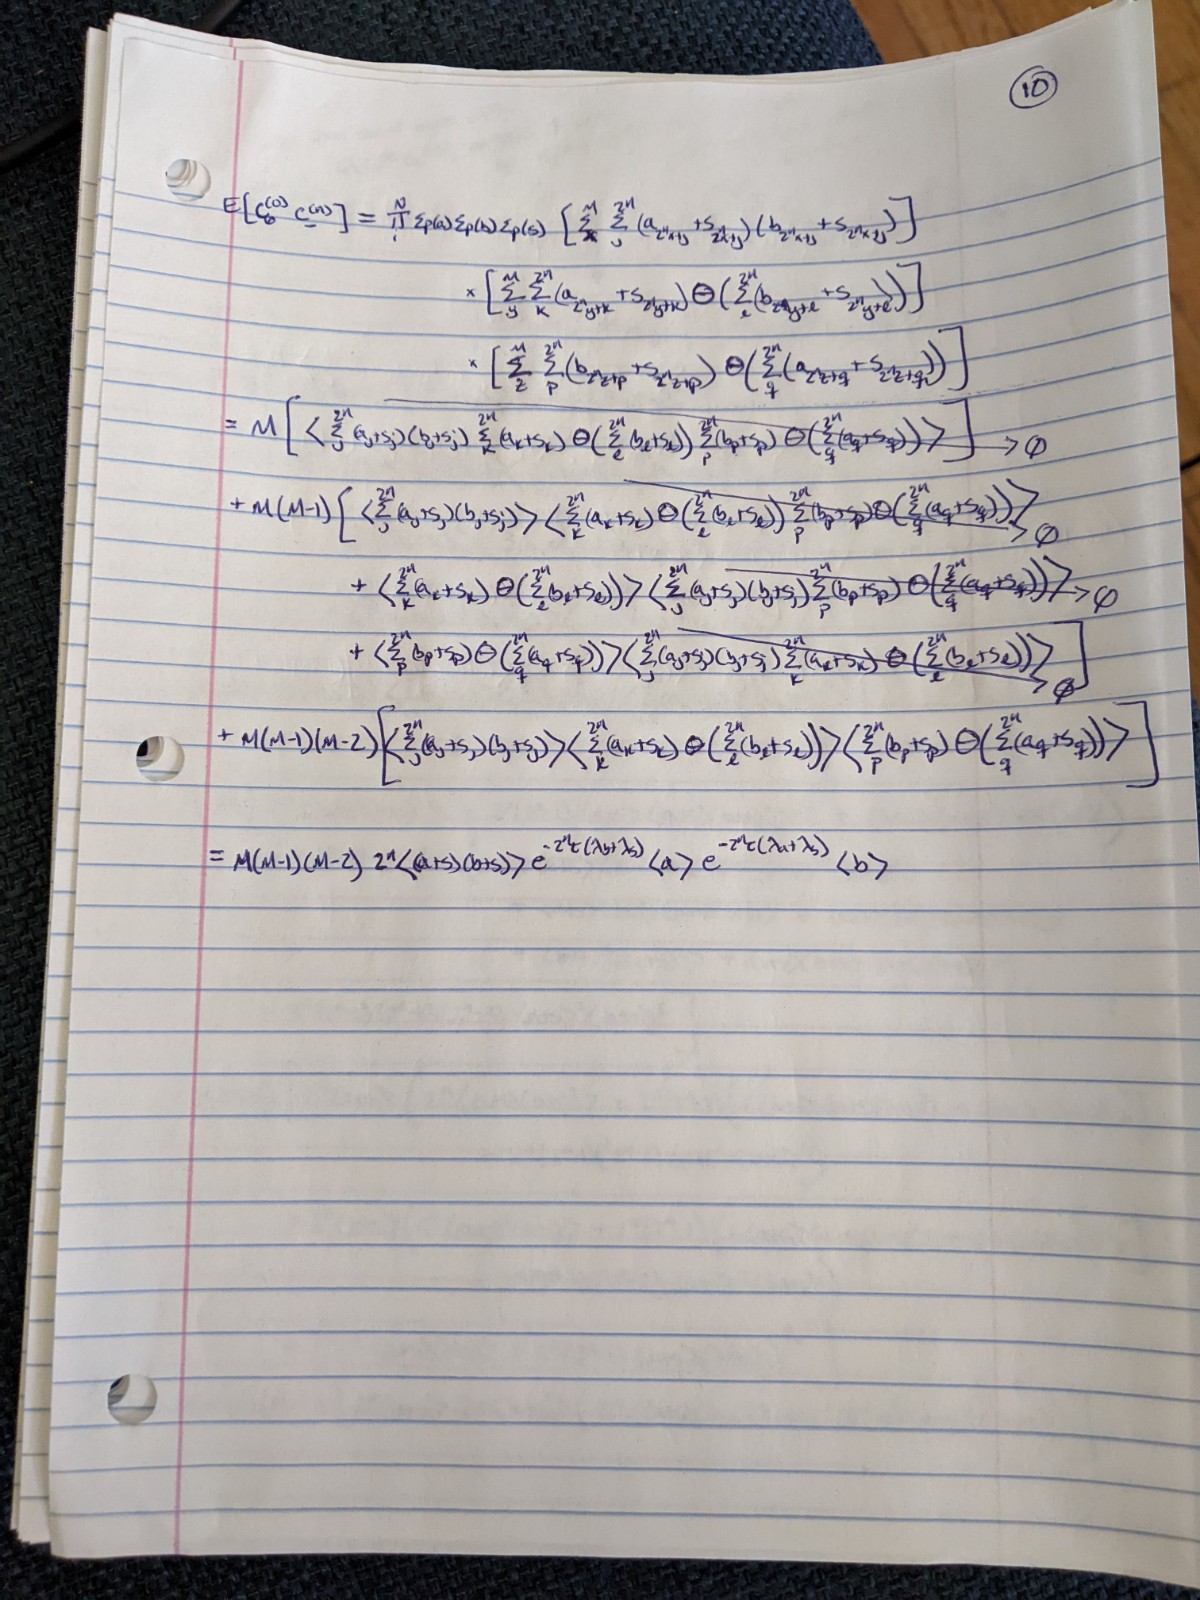 10
E[C_0^{(0)} C_-^{(n)}] = ∏_i^N Σp(a) Σp(b) Σp(s) [Σ_x^M Σ_y^{2^n} (a_{2^n x+y} + s_{2^n x+y})(b_{2^n x+y} + s_{2^n x+y})]
× [Σ_y^M Σ_k^{2^n} (a_{2^n y+k} + s_{2^n y+k}) Θ(Σ_ℓ^{2^n} (b_{2^n y+ℓ} + s_{2^n y+ℓ}))]
× [Σ_z^M Σ_p^{2^n} (b_{2^n z+p} + s_{2^n z+p}) Θ(Σ_q^{2^n} (a_{2^n z+q} + s_{2^n z+q}))]
= M [⟨Σ_j^{2^n} (a_j+s_j)(b_j+s_j) Σ_k^{2^n} (a_k+s_k) Θ(Σ_ℓ^{2^n} (b_ℓ+s_ℓ)) Σ_p^{2^n} (b_p+s_p) Θ(Σ_q^{2^n} (a_q+s_q))⟩] → 0
+ M(M-1) [⟨Σ_j^{2^n} (a_j+s_j)(b_j+s_j)⟩ ⟨Σ_k^{2^n} (a_k+s_k) Θ(Σ_ℓ^{2^n} (b_ℓ+s_ℓ)) Σ_p^{2^n} (b_p+s_p) Θ(Σ_q^{2^n} (a_q+s_q))⟩ → 0
+ ⟨Σ_k^{2^n} (a_k+s_k) Θ(Σ_ℓ^{2^n} (b_ℓ+s_ℓ))⟩ ⟨Σ_j^{2^n} (a_j+s_j)(b_j+s_j) Σ_p^{2^n} (b_p+s_p) Θ(Σ_q^{2^n} (a_q+s_q))⟩ → 0
+ ⟨Σ_p^{2^n} (b_p+s_p) Θ(Σ_q^{2^n} (a_q+s_q))⟩ ⟨Σ_j^{2^n} (a_j+s_j)(b_j+s_j) Σ_k^{2^n} (a_k+s_k) Θ(Σ_ℓ^{2^n} (b_ℓ+s_ℓ))⟩] → 0
+ M(M-1)(M-2) [⟨Σ_j^{2^n} (a_j+s_j)(b_j+s_j)⟩ ⟨Σ_k^{2^n} (a_k+s_k) Θ(Σ_ℓ^{2^n} (b_ℓ+s_ℓ))⟩ ⟨Σ_p^{2^n} (b_p+s_p) Θ(Σ_q^{2^n} (a_q+s_q))⟩]
= M(M-1)(M-2) 2^n ⟨(a+s)(b+s)⟩ e^{-2^n τ(λ_b+λ_s)} ⟨a⟩ e^{-2^n τ(λ_a+λ_s)} ⟨b⟩